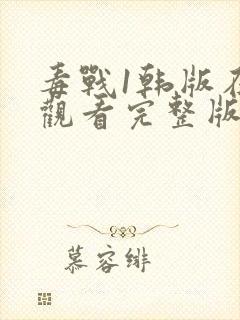 毒戰1韩版在
觀看完整版
慕容绯